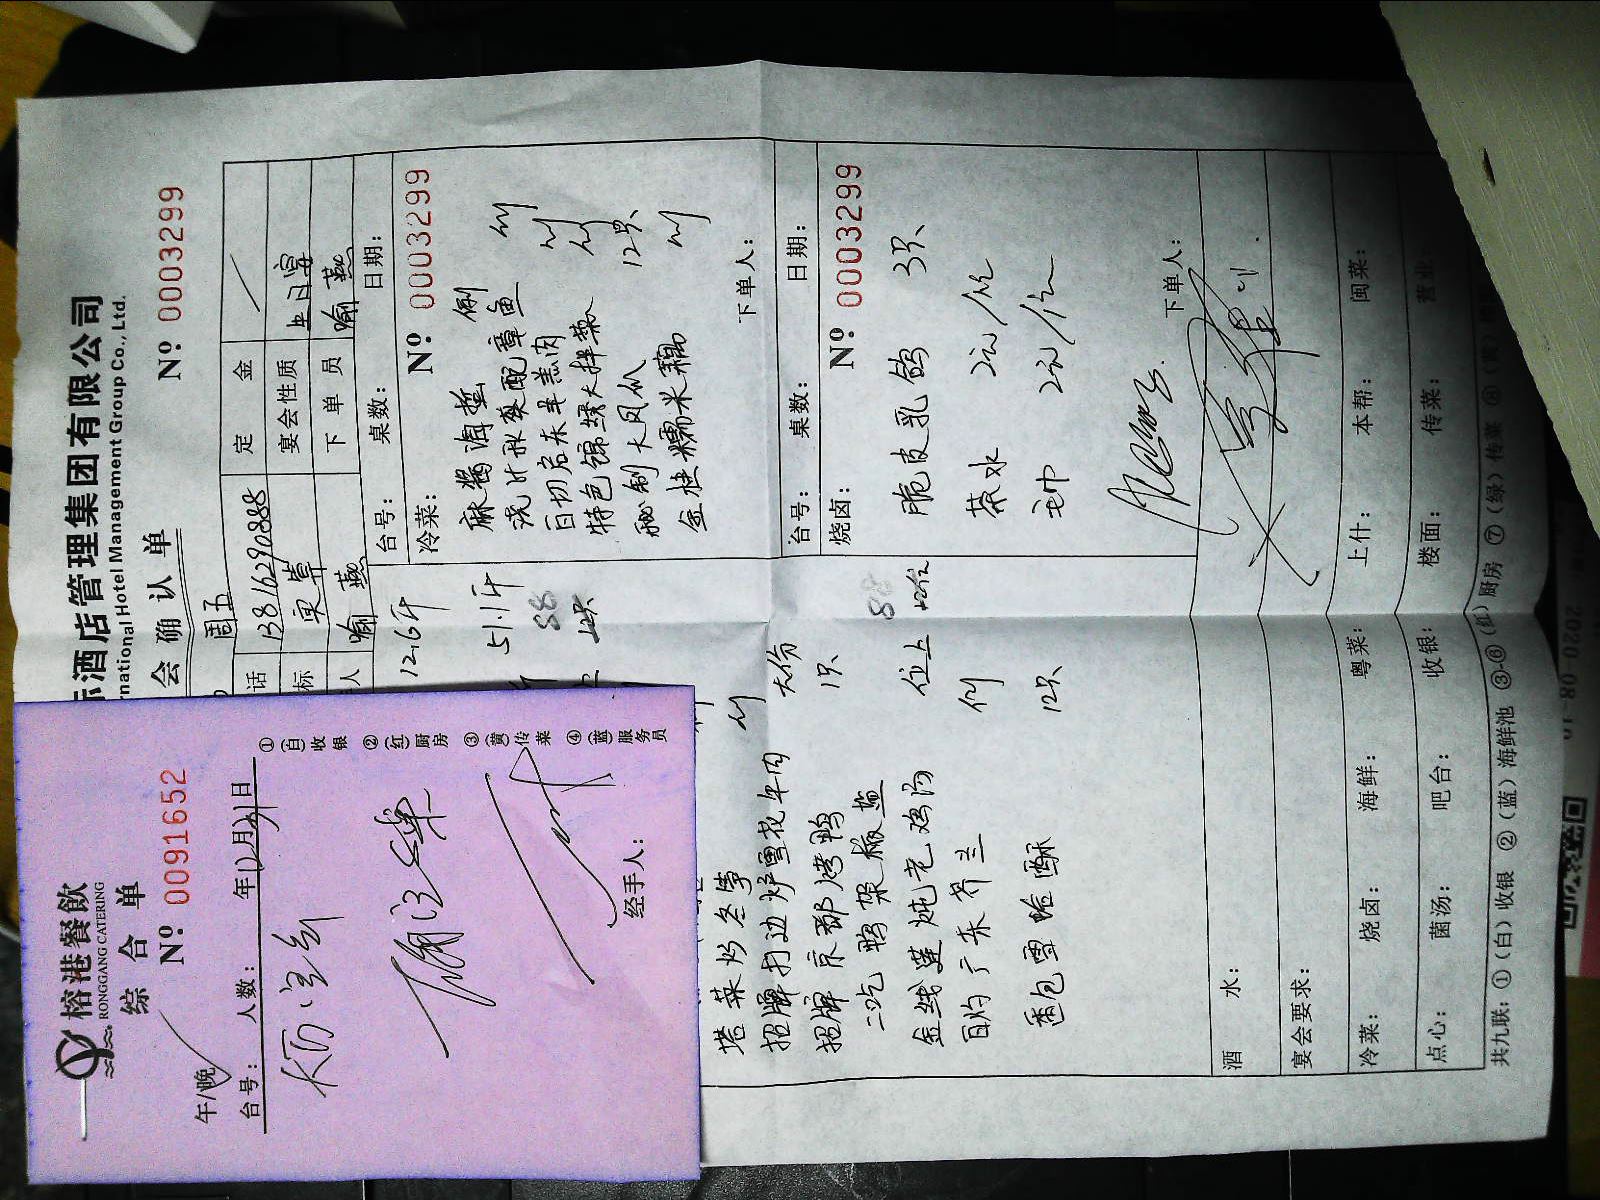 榕港餐飲
RONGGANG CATERING
综合单
午/晚
Nº 0091652
台号： 人数： 年12月31日
经手人：
①(白)收银
②(红)厨房
③(黄)传菜
④(蓝)服务员
际酒店管理集团有限公司
rnational Hotel Management Group Co., Ltd.
会确认单
Nº 0003299
周五
话 13816290888 定金
标 宴会性质
人 喻燕 下单员 喻燕
12.6斤
51.1斤
88
塔菜炒冬笋 例
招牌打边炉雪花牛肉 大份
招牌京都烤鸭 1只
二吃鸭架椒盐
金线莲炖老鸡汤 位上 88
白灼广东芥兰 例
番包雪蛤酥 12只
台号： 桌数： 日期：
冷菜： Nº 0003299
麻酱海蜇 例
浇汁秋葵配章鱼 例
白切启东羊羔肉 例
特色锦绣大拌菜 例
秘制大风爪 12只
金桂糯米藕 例
下单人：
台号： 桌数： 日期：
烧卤： Nº 0003299
脆皮乳鸽 3只
茶水 2元/位
毛巾 2元/位
下单人：
酒水：
宴会要求：
冷菜： 烧卤： 海鲜： 粤菜： 上什： 本帮： 闽菜：
点心： 菌汤： 吧台： 收银： 楼面： 传菜： 营业：
共九联：①(白)收银 ②(蓝)海鲜池 ③-⑥(红)厨房 ⑦(绿)传菜 ⑧(黄)